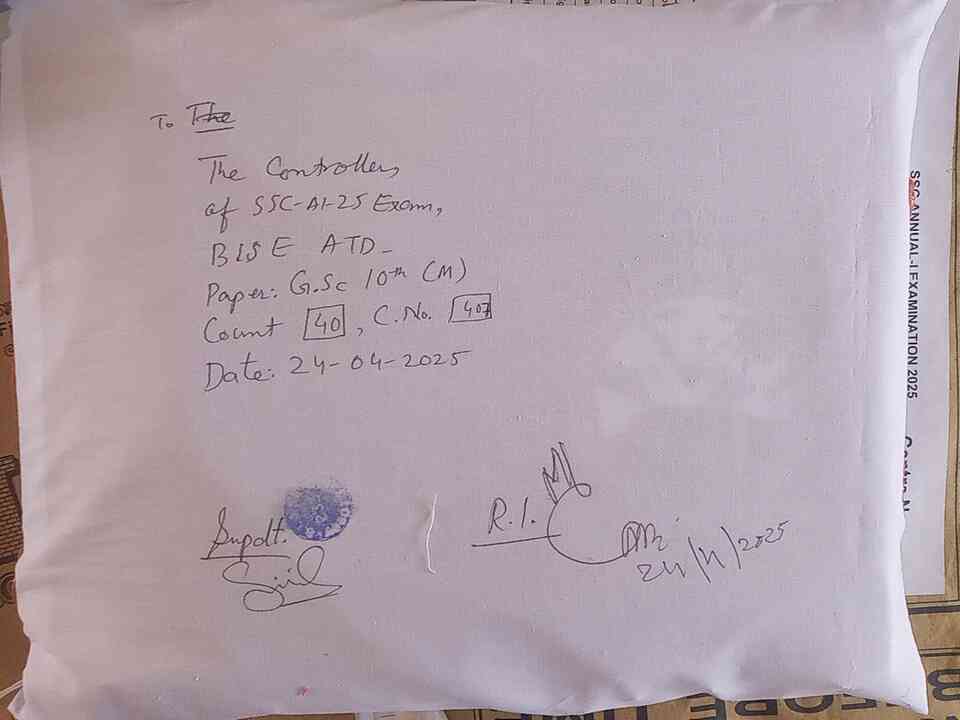 To The
The Controller,
of SSC-A1-25 Exam,
BISE ATD-
Paper: G.Sc 10th (M)
Count 40, C.No. 407
Date: 24-04-2025
Supdt.
R.I.
24/4/2025
SSC ANNUAL-I EXAMINATION 2025